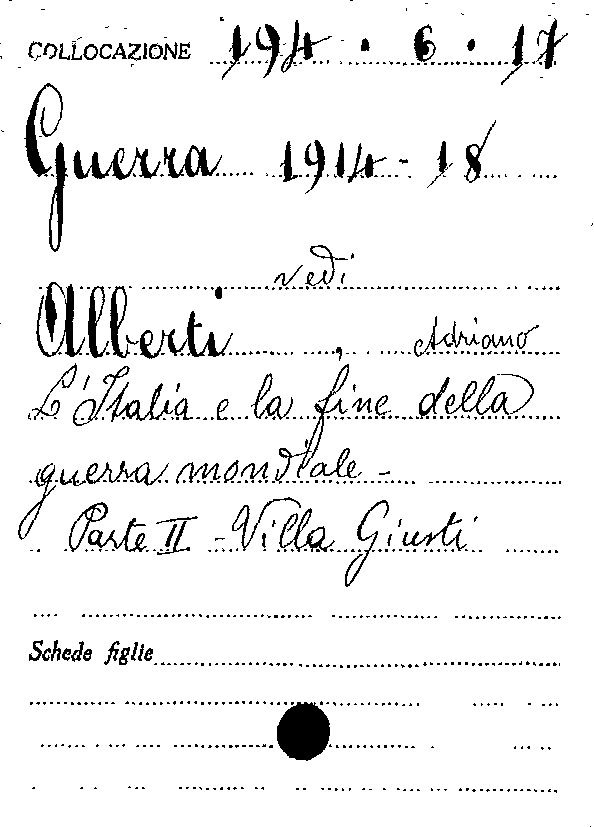 COLLOCAZIONE 194 . 6 . 17
Guerra 1914 - 18
vedi
Alberti , Adriano
L'Italia e la fine della
guerra mondiale -
Parte II - Villa Giusti
Schede figlie